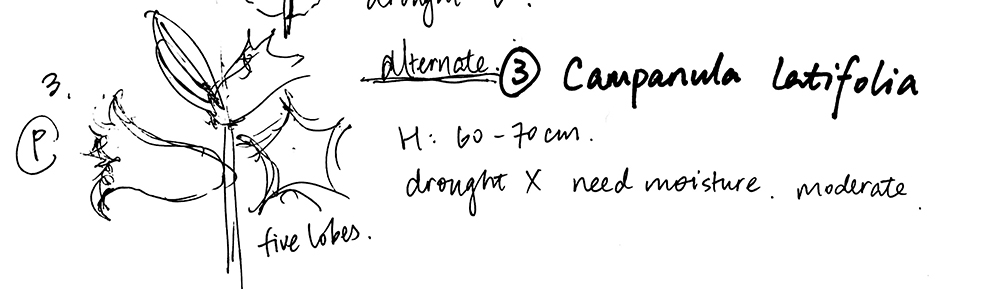 drought
alternate. ③ Campanula latifolia
3.
Ⓟ
H: 60-70cm.
drought X need moisture. moderate.
five lobes.